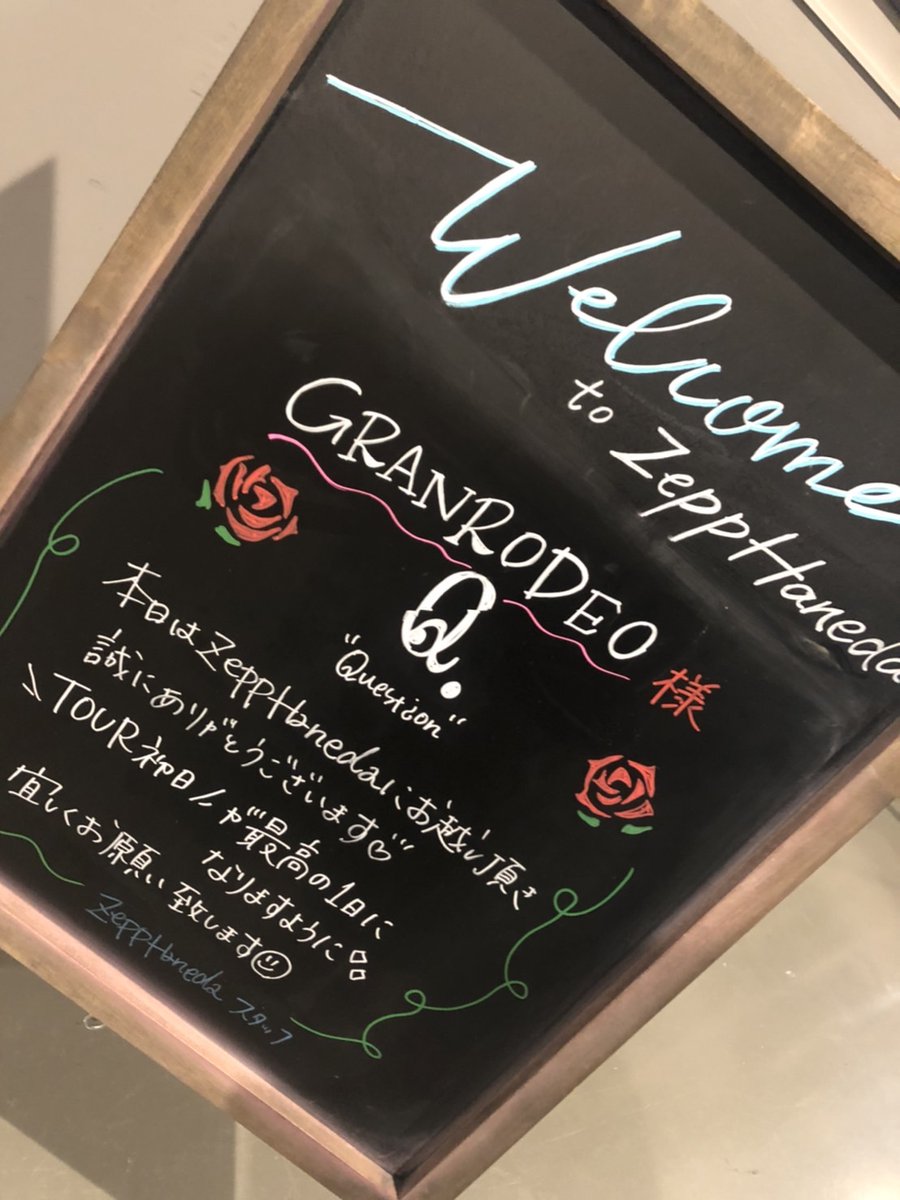 Welcome
to ZeppHaneda
GRANRODEO 様
Q.
"Question"
本日はZeppHanedaにお越し頂き
誠にありがとうございます♡
\TOUR初日/が最高の1日に
なりますように
宜しくお願い致します☺
ZeppHaneda スタッフ